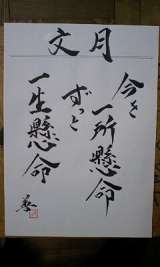 文月
今を
一所懸命
ずっと
一生懸命